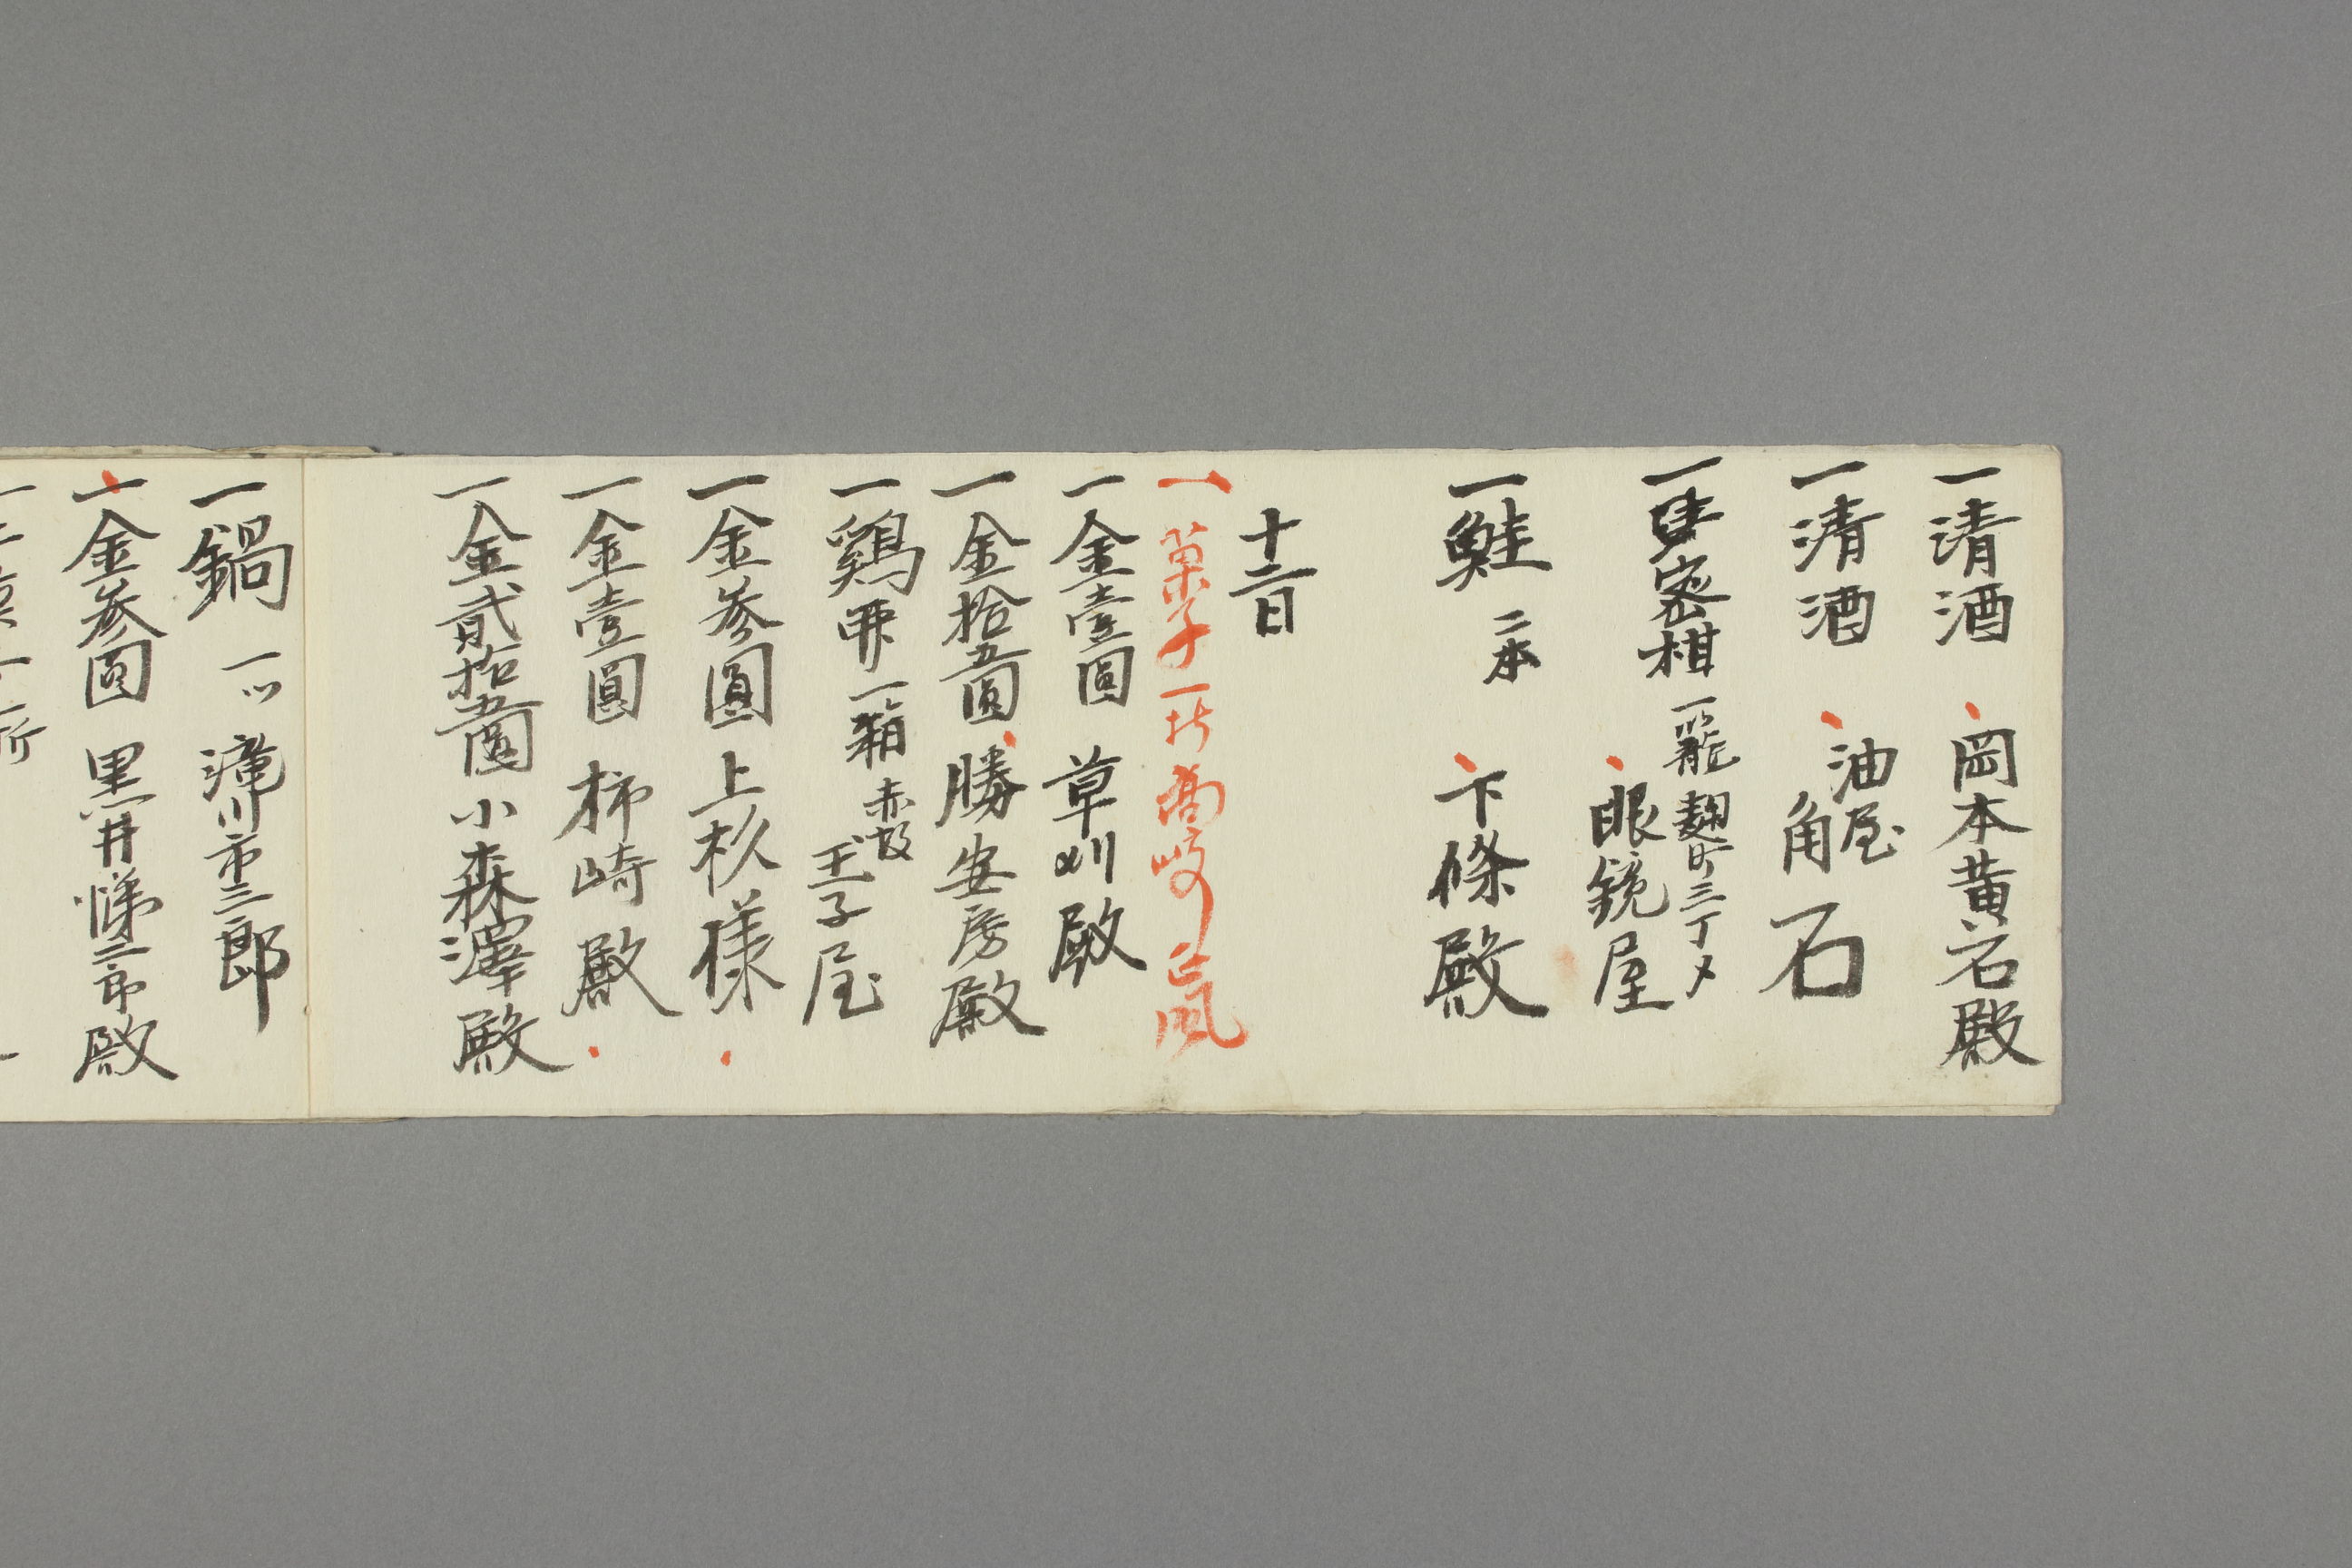 一清酒 岡本黄石殿
一清酒 油屋角石
一密柑 一籠 麹町三丁メ
眼鏡屋
一鮭 二本 下條殿
十二日
一菓子一折 高崎正風
一金壹圓 草刈殿
一金拾五圓 勝安房殿
一鶏卵一箱 赤坂
玉子屋
一金参圓 上杉様
一金壹圓 柿崎殿
一金貳拾五圓 小森澤殿
一鍋 一ツ 滝川市三郎
一金参圓 黒井悌二郎殿